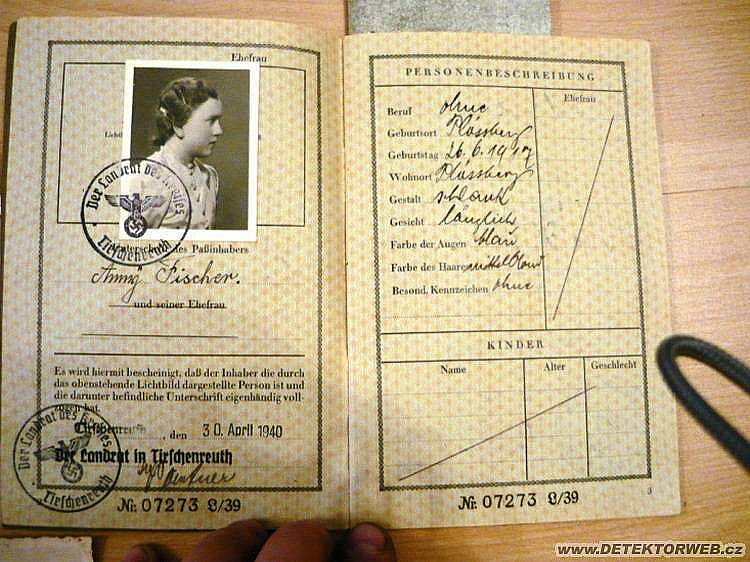 Ehefrau
Lichtb
Der Landrat des Kreises
Tirschenreuth
Unterschrift des Paßinhabers
Anny Fischer.
und seiner Ehefrau
Es wird hiermit bescheinigt, daß der Inhaber die durch
das obenstehende Lichtbild dargestellte Person ist und
die darunter befindliche Unterschrift eigenhändig voll-
zogen hat.
Tirschenreuth, den 30. April 1940
Der Landrat in Tirschenreuth
Der Landrat des Kreises
Tirschenreuth
Nr. 07273 L/39
PERSONENBESCHREIBUNG
Ehefrau
Beruf ohne
Geburtsort Plössberg
Geburtstag 26.6.1917
Wohnort Plössberg
Gestalt schlank
Gesicht länglich
Farbe der Augen blau
Farbe des Haares mittelblond
Besond. Kennzeichen ohne
KINDER
Name Alter Geschlecht
3
Nr. 07273 L/39
www.DETEKTORWEB.cz